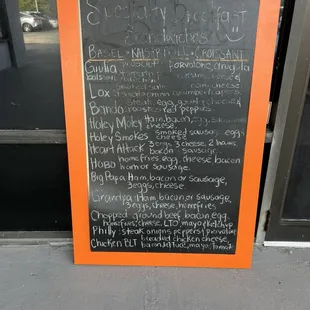 Specialty Breakfast
Sandwiches
BAGEL • KAISER ROLL • CROISSANT
Giulia prosciutto, provolone, arugula
balsamic
Lox cream cheese
Bando steak, egg,
roasted red peppers
Holy Moley Ham, bacon, egg,
cheese
Holey Smokes smoked sausage, egg,
cheese
Heart Attack 3 eggs 3 cheese 2 ham,
bacon sausage
Hobo homefries, egg, cheese, bacon
ham or sausage
Big Papa Ham, bacon or sausage,
3 eggs, cheese
Grandpa Ham, bacon or sausage,
3 eggs, cheese, homefries
Chopped ground beef, bacon, egg,
homefries, cheese, LTO, mayo, ketchup
Philly: steak, onions, peppers, provolone
Chicken BLT breaded chicken, cheese,
bacon, lettuce, mayo, tomato